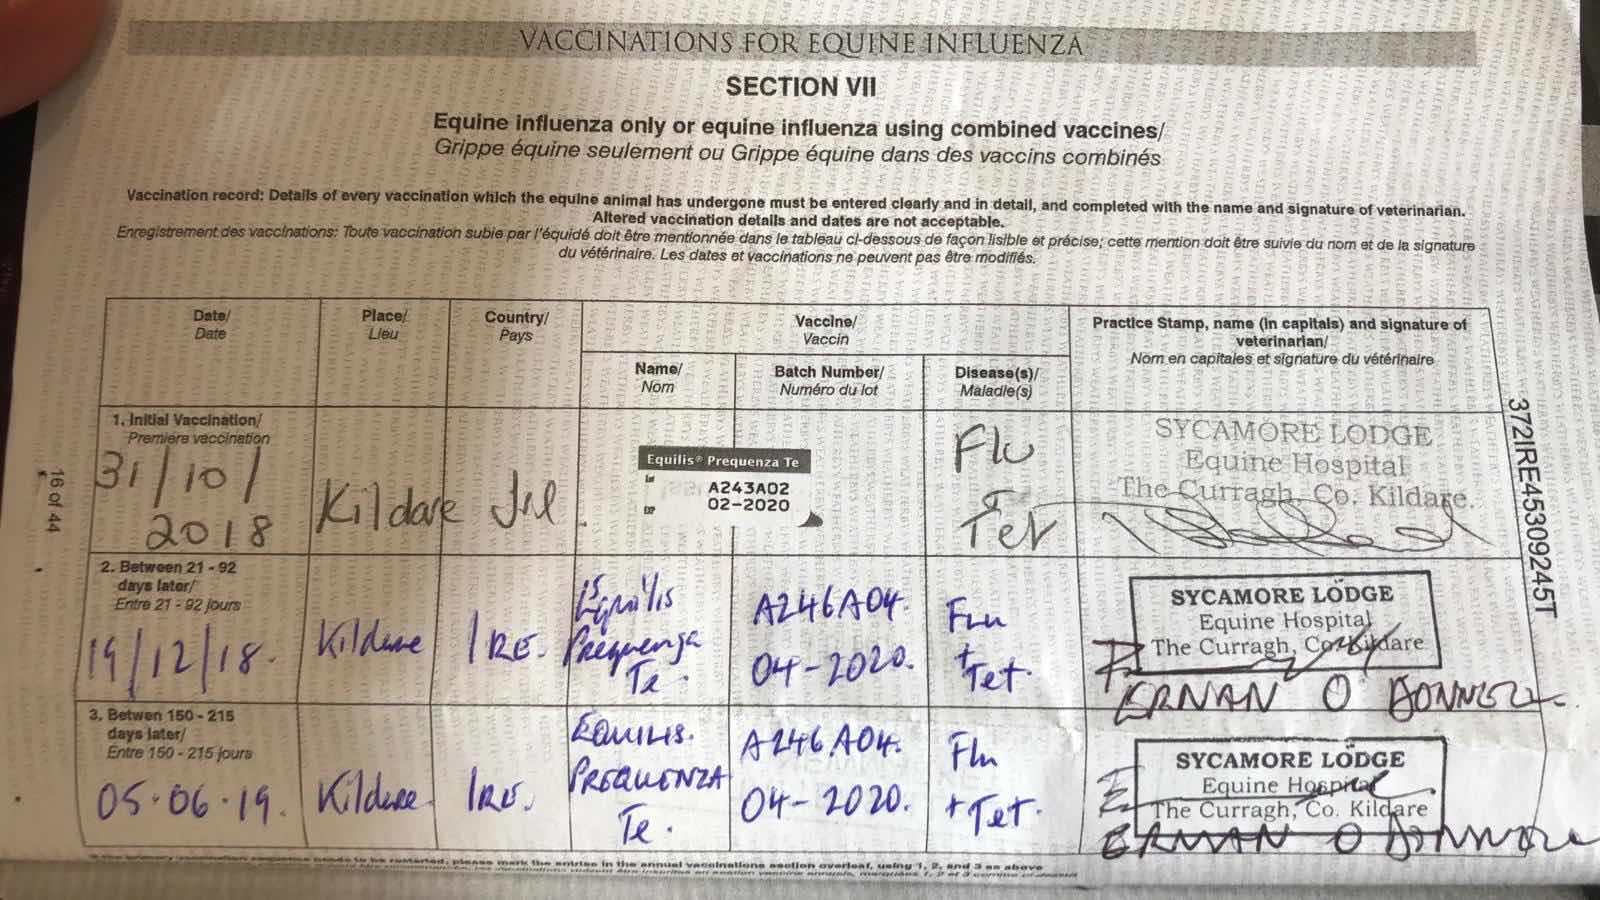 VACCINATIONS FOR EQUINE INFLUENZA
SECTION VII
Equine influenza only or equine influenza using combined vaccines/
Grippe équine seulement ou Grippe équine dans des vaccins combinés
Vaccination record: Details of every vaccination which the equine animal has undergone must be entered clearly and in detail, and completed with the name and signature of veterinarian.
Altered vaccination details and dates are not acceptable.
Enregistrement des vaccinations: Toute vaccination subie par l'équidé doit être mentionnée dans le tableau ci-dessous de façon lisible et précise; cette mention doit être suivie du nom et de la signature
du vétérinaire. Les dates et vaccinations ne peuvent pas être modifiés.
Date/
Date
Place/
Lieu
Country/
Pays
Vaccine/
Vaccin
Name/
Nom
Batch Number/
Numéro du lot
Disease(s)/
Maladie(s)
Practice Stamp, name (in capitals) and signature of
veterinarian/
Nom en capitales et signature du vétérinaire
1. Initial Vaccination/
Premiere vaccination
31/10/
2018
Kildare
Irl
Equilis® Prequenza Te
Lot
A243A02
EXP
02-2020
Flu
&
Tet
SYCAMORE LODGE
Equine Hospital
The Curragh, Co. Kildare.
2. Between 21 - 92
days later/
Entre 21 - 92 jours
19/12/18.
Kildare
IRE.
Equilis
Prequenza
Te.
A246A04.
04-2020.
Flu
+
Tet.
SYCAMORE LODGE
Equine Hospital
The Curragh, Co. Kildare
3. Betwen 150 - 215
days later/
Entre 150 - 215 jours
05.06.19.
Kildare
IRE.
EQUILIS.
PREQUENZA
Te.
A246A04.
04-2020.
Flu
+ Tet.
SYCAMORE LODGE
Equine Hospital
The Curragh, Co. Kildare
16 of 44
372IRE45309245T